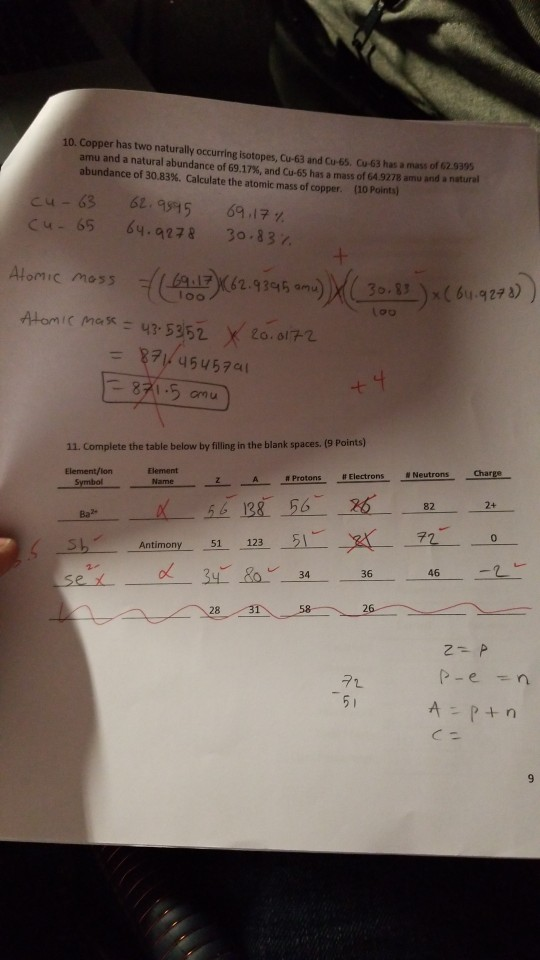 10. Copper has two naturally occurring isotopes, Cu-63 and Cu-65. Cu-63 has a mass of 62.9395
amu and a natural abundance of 69.17%, and Cu-65 has a mass of 64.9278 amu and a natural
abundance of 30.83%. Calculate the atomic mass of copper. (10 Points)
Cu - 63 62.9395 69.17 %
Cu - 65 64.9278 30.83 %
+
Atomic mass = ((69.17/100)(62.9395 amu)) x ((30.83/100) x (64.9278))
Atomic mass = 43.5352 x 20.0172
= 871.4545791
= 871.5 amu
+4
11. Complete the table below by filling in the blank spaces. (9 Points)
Element/Ion Symbol Element Name Z A # Protons # Electrons # Neutrons Charge
Ba2+ 56 138 56 82 2+
Sb Antimony 51 123 51 72 0
Se2- x 34 80 34 36 46 -2
28 31 58 26
Z = P
72 P - e = n
- 51 A = p + n
C =
9